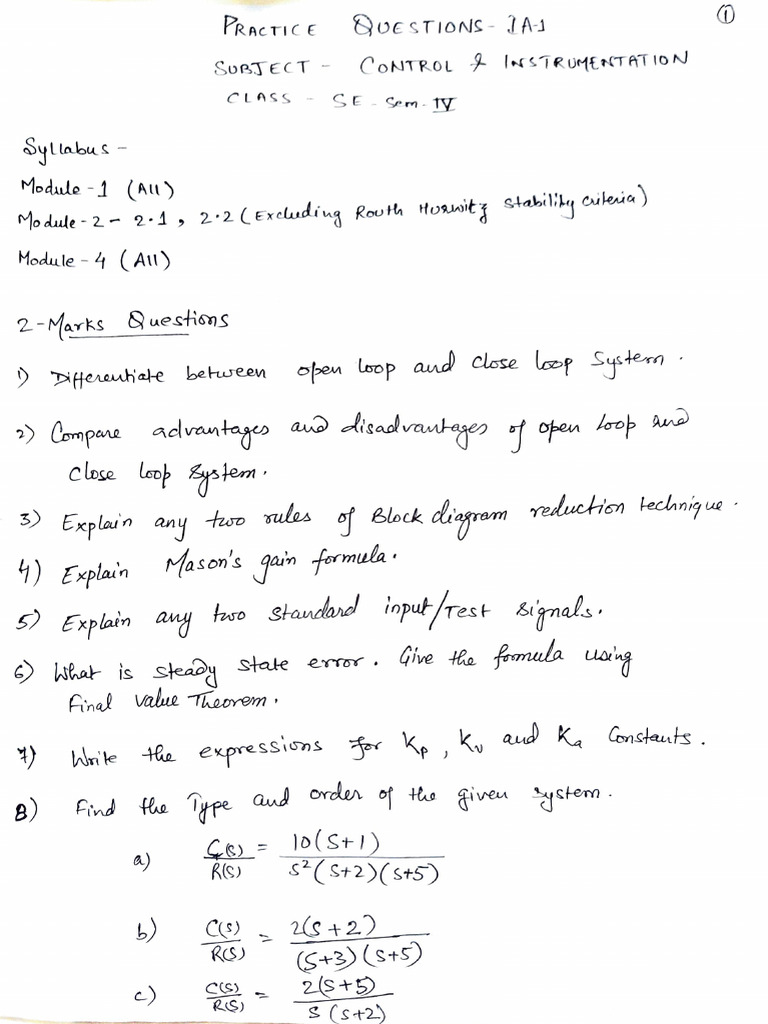 ①
PRACTICE QUESTIONS - IA-1
SUBJECT - CONTROL & INSTRUMENTATION
CLASS - SE - Sem - IV
Syllabus -
Module - 1 (All)
Module - 2 - 2.1, 2.2 (Excluding Routh Hurwitz Stability criteria)
Module - 4 (All)
2-Marks Questions
1) Differentiate between open loop and close loop System.
2) Compare advantages and disadvantages of open loop and
close loop system.
3) Explain any two rules of Block diagram reduction technique.
4) Explain Mason's gain formula.
5) Explain any two standard input/Test signals.
6) What is steady state error. Give the formula using
final value Theorem.
7) Write the expressions for Kp, Kv and Ka Constants.
8) Find the Type and order of the given system.
a) C(S)/R(S) = 10(S+1)/S²(S+2)(S+5)
b) C(S)/R(S) = 2(S+2)/(S+3)(S+5)
c) C(S)/R(S) = 2(S+5)/S(S+2)